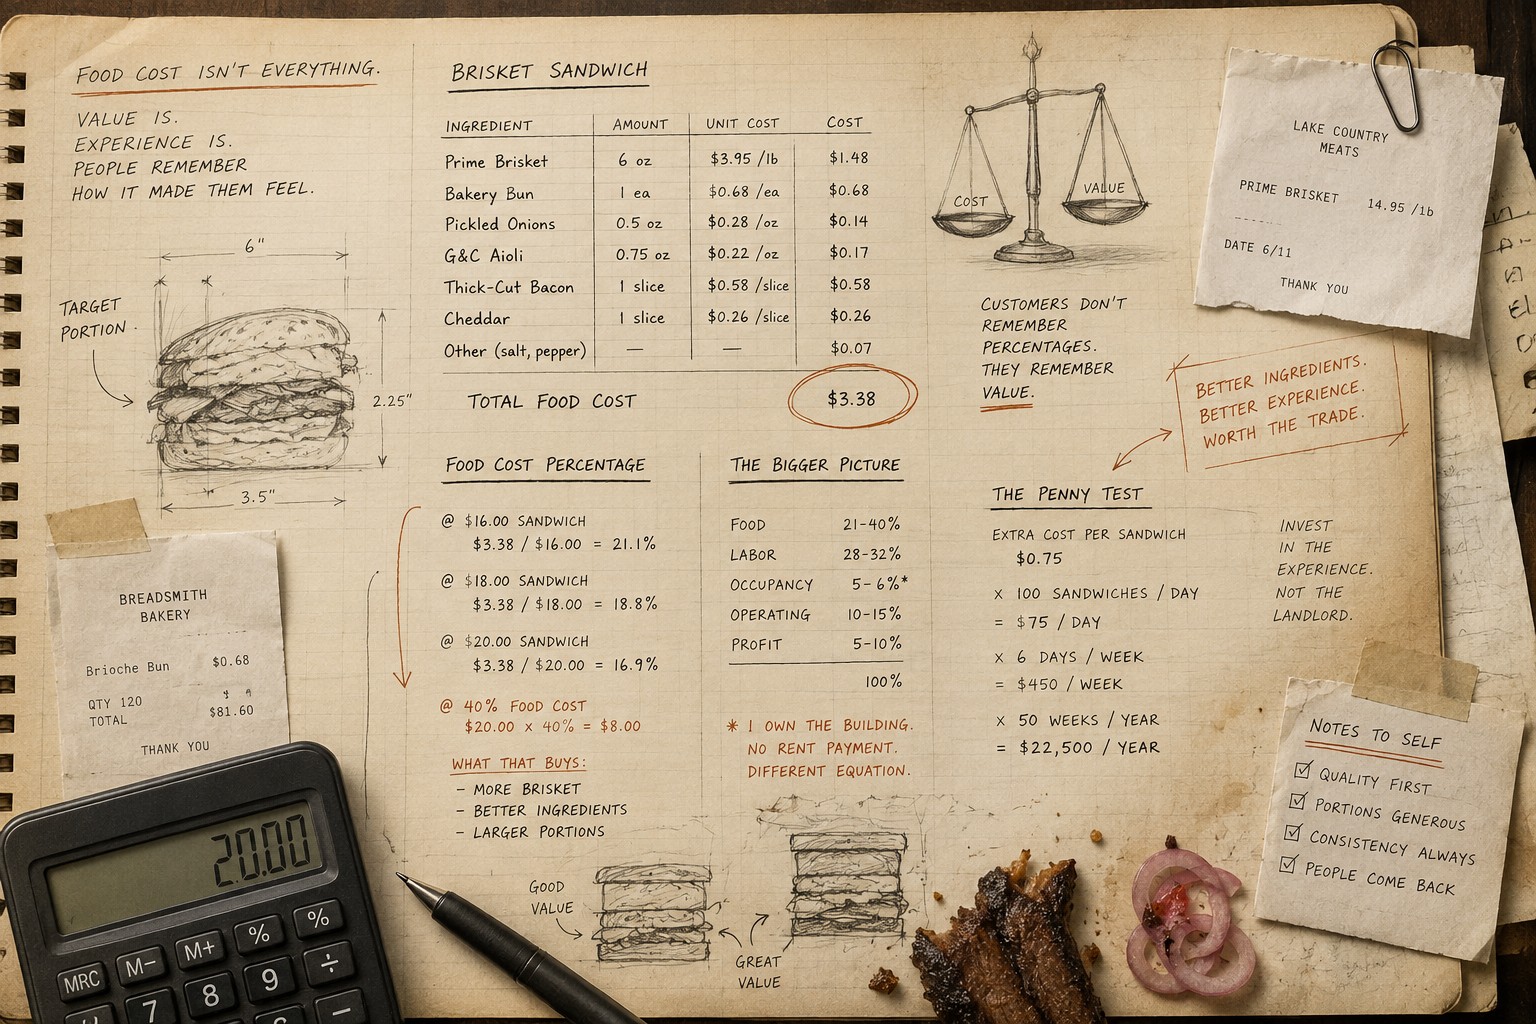 FOOD COST ISN'T EVERYTHING.
VALUE IS.
EXPERIENCE IS.
PEOPLE REMEMBER
HOW IT MADE THEM FEEL.
6"
TARGET
PORTION
2.25"
3.5"
BREADSMITH
BAKERY
Brioche Bun $0.68
QTY 120
TOTAL $81.60
THANK YOU
20.00
MRC M- M+ % %
7 8 9 ÷
BRISKET SANDWICH
INGREDIENT AMOUNT UNIT COST COST
Prime Brisket 6 oz $3.95 /lb $1.48
Bakery Bun 1 ea $0.68 /ea $0.68
Pickled Onions 0.5 oz $0.28 /oz $0.14
G&C Aioli 0.75 oz $0.22 /oz $0.17
Thick-Cut Bacon 1 slice $0.58 /slice $0.58
Cheddar 1 slice $0.26 /slice $0.26
Other (salt, pepper) — — $0.07
TOTAL FOOD COST $3.38
FOOD COST PERCENTAGE
@ $16.00 SANDWICH
$3.38 / $16.00 = 21.1%
@ $18.00 SANDWICH
$3.38 / $18.00 = 18.8%
@ $20.00 SANDWICH
$3.38 / $20.00 = 16.9%
@ 40% FOOD COST
$20.00 x 40% = $8.00
WHAT THAT BUYS:
– MORE BRISKET
– BETTER INGREDIENTS
– LARGER PORTIONS
GOOD
VALUE
GREAT
VALUE
THE BIGGER PICTURE
FOOD 21-40%
LABOR 28-32%
OCCUPANCY 5-6%*
OPERATING 10-15%
PROFIT 5-10%
100%
* I OWN THE BUILDING.
NO RENT PAYMENT.
DIFFERENT EQUATION.
COST
VALUE
CUSTOMERS DON'T
REMEMBER
PERCENTAGES.
THEY REMEMBER
VALUE.
LAKE COUNTRY
MEATS
PRIME BRISKET 14.95 /lb
DATE 6/11
THANK YOU
BETTER INGREDIENTS.
BETTER EXPERIENCE.
WORTH THE TRADE.
THE PENNY TEST
EXTRA COST PER SANDWICH
$0.75
x 100 SANDWICHES / DAY
= $75 / DAY
x 6 DAYS / WEEK
= $450 / WEEK
x 50 WEEKS / YEAR
= $22,500 / YEAR
INVEST
IN THE
EXPERIENCE.
NOT THE
LANDLORD.
NOTES TO SELF
☑ QUALITY FIRST
☑ PORTIONS GENEROUS
☑ CONSISTENCY ALWAYS
☑ PEOPLE COME BACK